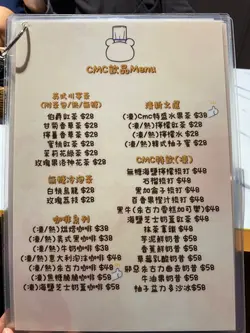 CMC飲品Menu
英式叫享茶
(附茶包/熱/無糖)
伯爵紅茶 $28
甘菊香果茶 $28
檸薑香草茶 $28
蜜桃軟茶 $28
茉莉花綠茶 $28
玫瑰果洛神花茶 $28
無糖冷泡茶
白桃烏龍 $38
玫瑰荔枝 $38
咖啡系列
(凍/熱)烘焙咖啡 $38
(凍/熱)美式黑咖啡 $38
(凍/熱)牛奶咖啡 $38
(凍/熱)意大利泡沫咖啡 $48
(凍/熱)朱古力咖啡 $50
(凍)焦糖燒糖咖啡 $50
(凍)海鹽芝士奶蓋咖啡 $50
港新之選
(凍)Cmc特盛水果茶 $38
(凍/熱)檸檬紅茶 $28
(凍/熱)檸檬水 $28
(凍/熱)韓式柚子蜜 $28
CMC特飲(凍)
無糖海鹽檸檬梳打 $48
石榴梳打 $48
黑加侖子梳打 $48
百香果橙汁梳打 $48
黑牛(朱古力雪糕加可樂) $48
海鹽芝士奶蓋紅茶 $48
抹茶拿鐵 $48
芋泥鮮奶昔 $58
香蕉鮮奶昔 $58
草莓乳酸奶昔 $58
朱古力奶昔 $58
牛油果奶昔 $58
柚子益力多沙冰 $58